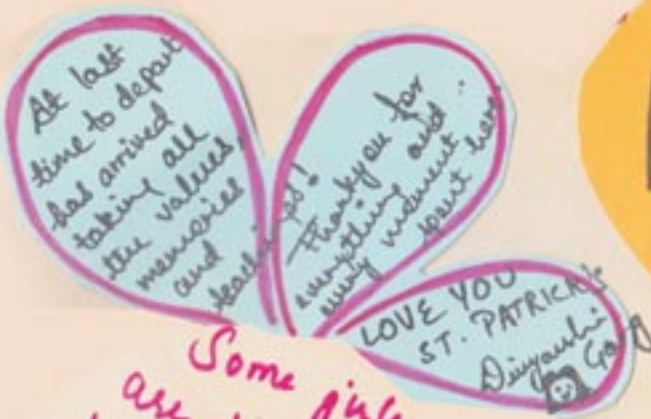 At last
time to depart
has arrived
taking all
the values,
memories
and
teachings!
Thankyou for
everything and
every moment
spent here.
LOVE YOU
ST. PATRICK's
Divyanshi Garg
Some
are